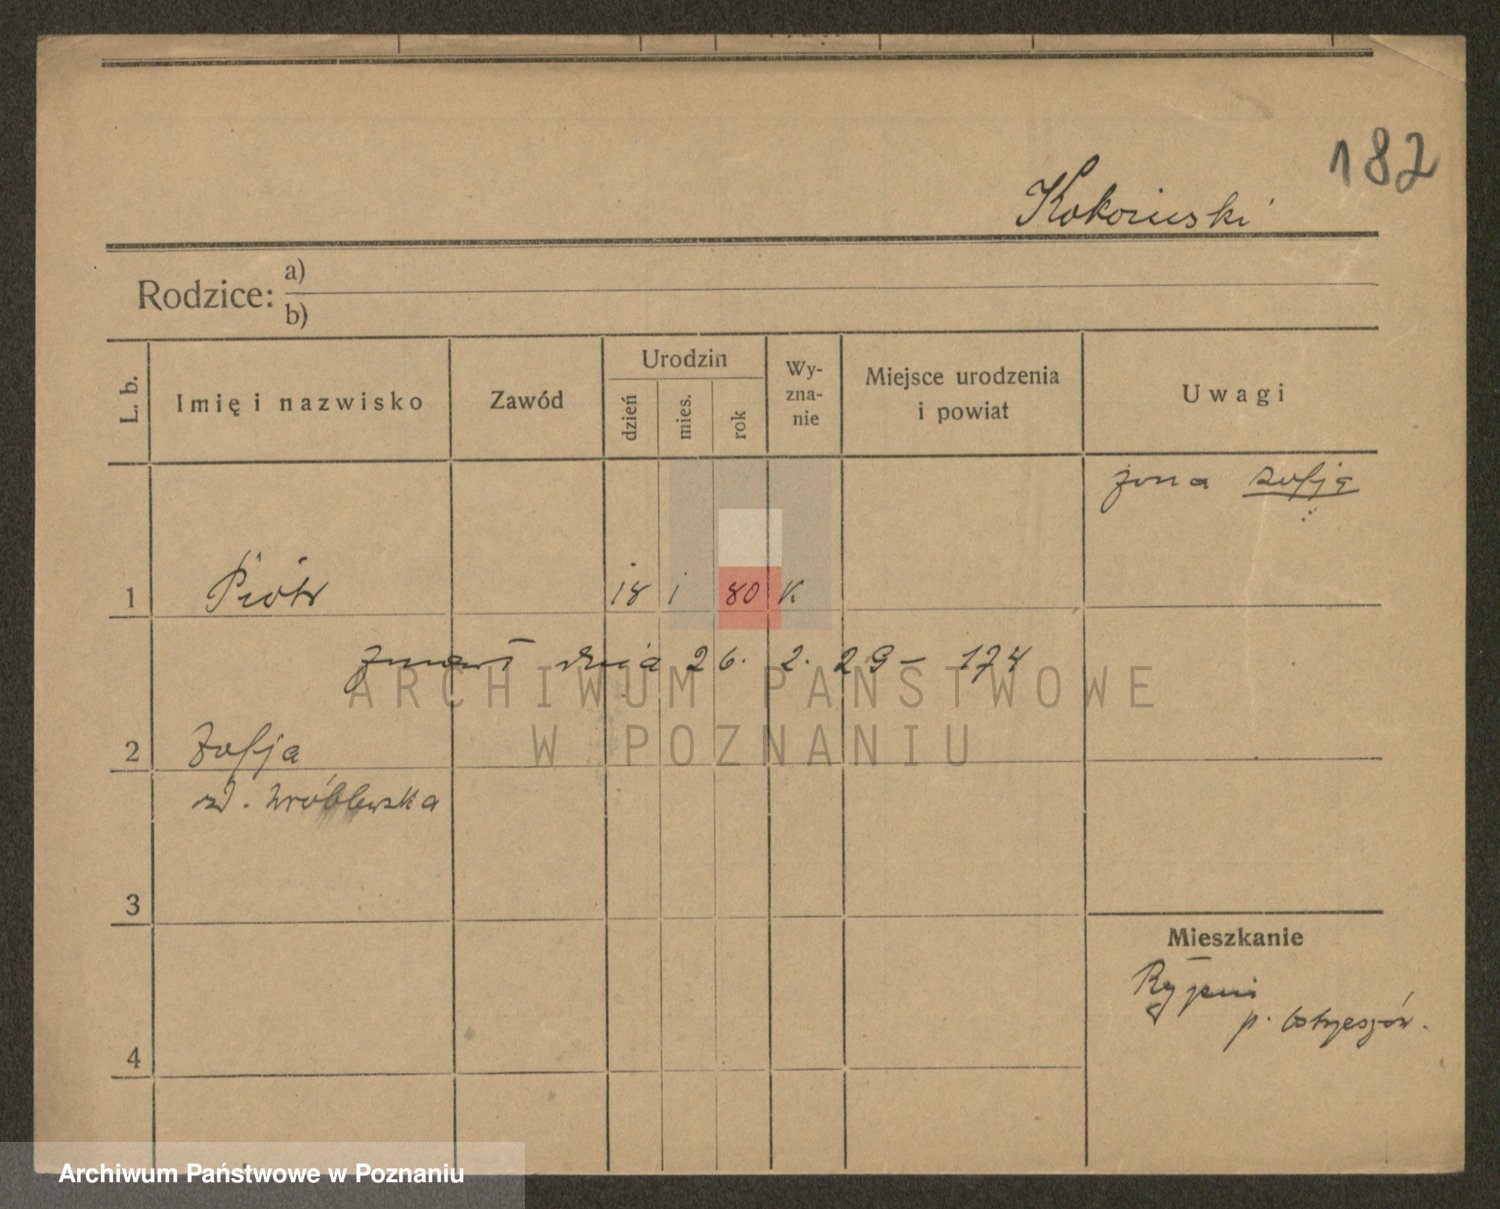 182
Kokociński
Rodzice: a)
b)
L. b.
Imię i nazwisko
Zawód
Urodzin
dzień
mies.
rok
Wy-
zna-
nie
Miejsce urodzenia
i powiat
Uwagi
żona Zofja
1 Piotr 18 1 80 K
zmarł dnia 26. 2. 29 - 174
ARCHIWUM PAŃSTWOWE
W POZNANIU
2 Zofja
zd. Wróblewska
3
Mieszkanie
p. Ostrzeszów.
4
Archiwum Państwowe w Poznaniu